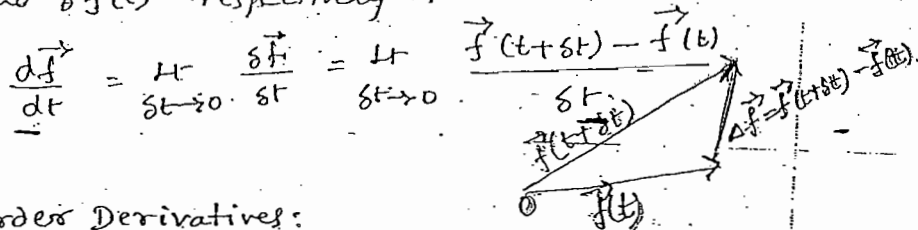 respectively
df⃗/dt = Lt δt→0 δf⃗/δt = Lt δt→0 (f⃗(t+δt) − f⃗(t))/δt
f⃗(t+δt)
Δf⃗ = f⃗(t+δt) − f⃗(t)
O
f⃗(t)
rder Derivatives: